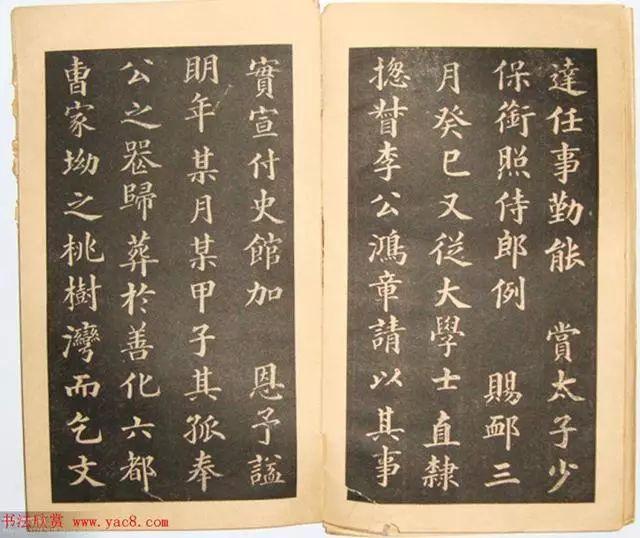 達任事勤能　賞太子少
保銜照侍郎例　賜卹三
月癸巳又從大學士直隸
揔督李公鴻章請以其事
實宣付史館加　恩予謚
明年某月某甲子其孤奉
公之喪歸葬於善化六都
曹家坳之桃樹灣而乞文
书法欣赏 www.yac8.com